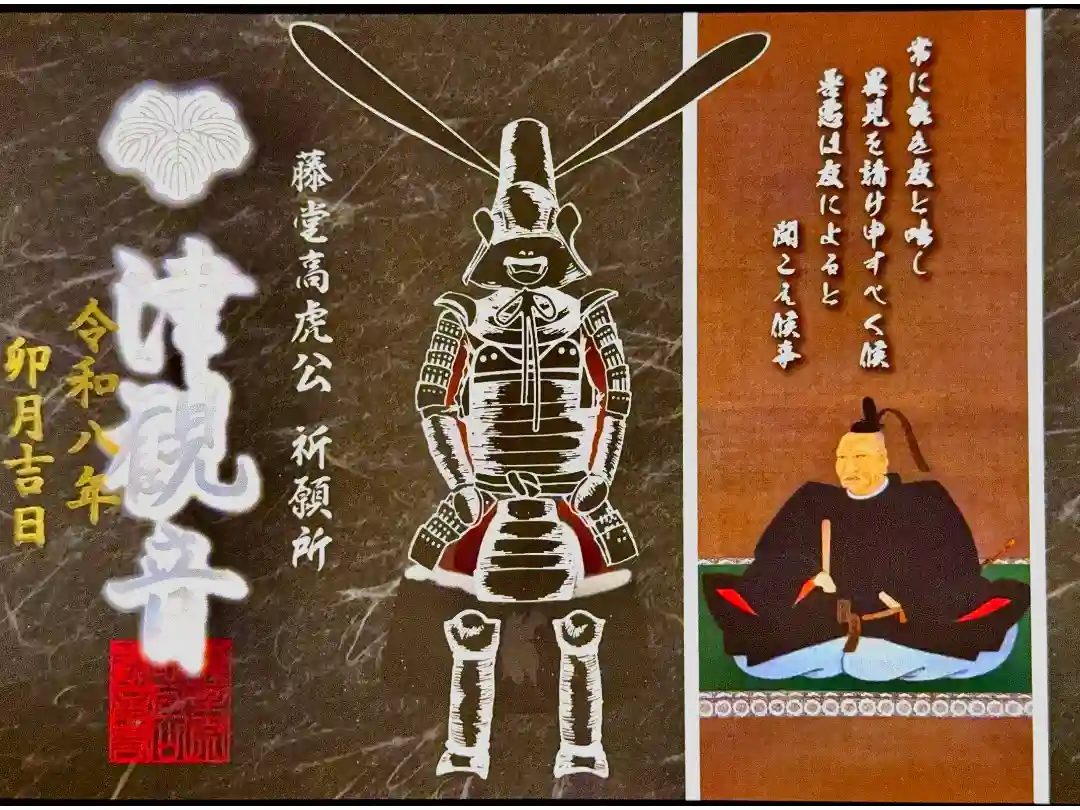 常に良き友と咄し
異見を請け申すべく候
善悪は友によると
聞こえ候事
藤堂高虎公 祈願所
津観音
令和八年
卯月吉日